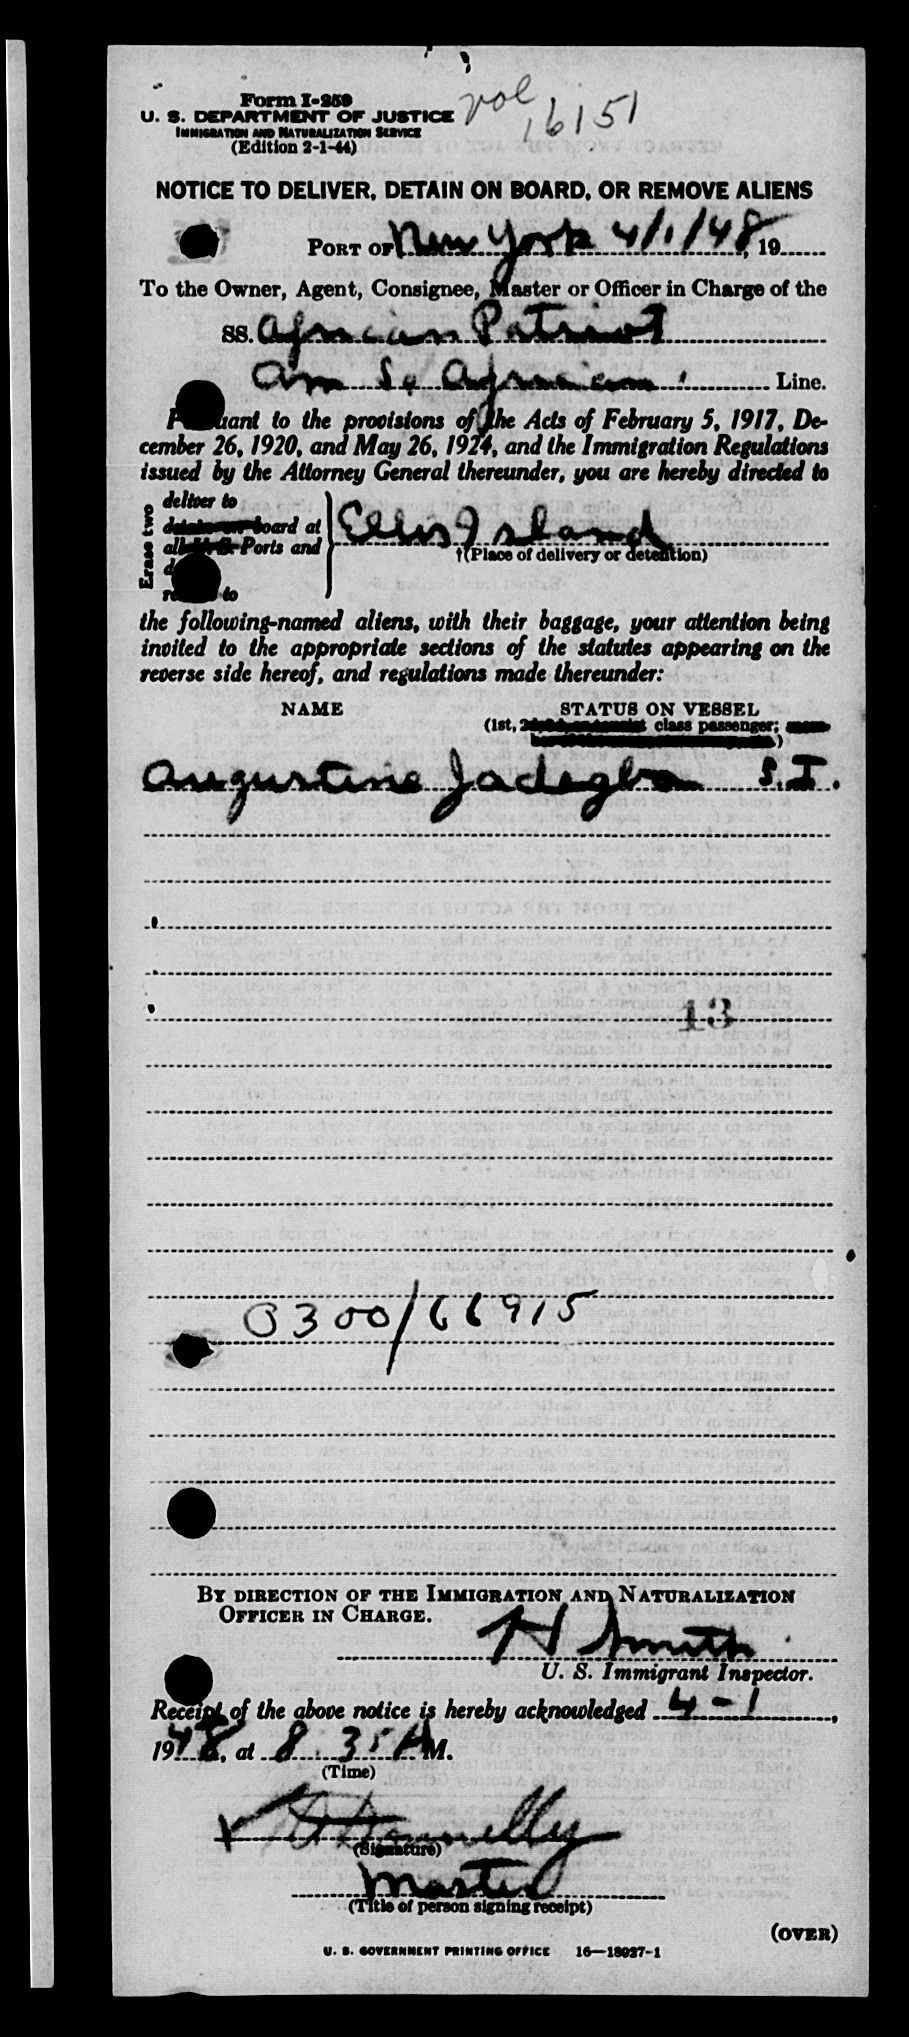 Form I-259
vol 16151
U. S. DEPARTMENT OF JUSTICE
IMMIGRATION AND NATURALIZATION SERVICE
(Edition 2-1-44)
NOTICE TO DELIVER, DETAIN ON BOARD, OR REMOVE ALIENS
PORT OF New York 4/1/48, 19
To the Owner, Agent, Consignee, Master or Officer in Charge of the
SS. African Patriot
Am So African Line.
Pursuant to the provisions of the Acts of February 5, 1917, De-
cember 26, 1920, and May 26, 1924, and the Immigration Regulations
issued by the Attorney General thereunder, you are hereby directed to
Erase two
deliver to
board at
all Ports and
to
Ellis Island
†(Place of delivery or detention)
the following-named aliens, with their baggage, your attention being
invited to the appropriate sections of the statutes appearing on the
reverse side hereof, and regulations made thereunder:
NAME STATUS ON VESSEL
(1st, class passenger;
)
Augustine Jadegba S.I.
13
0300/66915
BY DIRECTION OF THE IMMIGRATION AND NATURALIZATION
OFFICER IN CHARGE.
H Smith
U. S. Immigrant Inspector.
Receipt of the above notice is hereby acknowledged 4-1,
1948, at 8:35 AM.
(Time)
Donnelly
(Signature)
Master
(Title of person signing receipt)
(OVER)
U. S. GOVERNMENT PRINTING OFFICE 16—18927-1